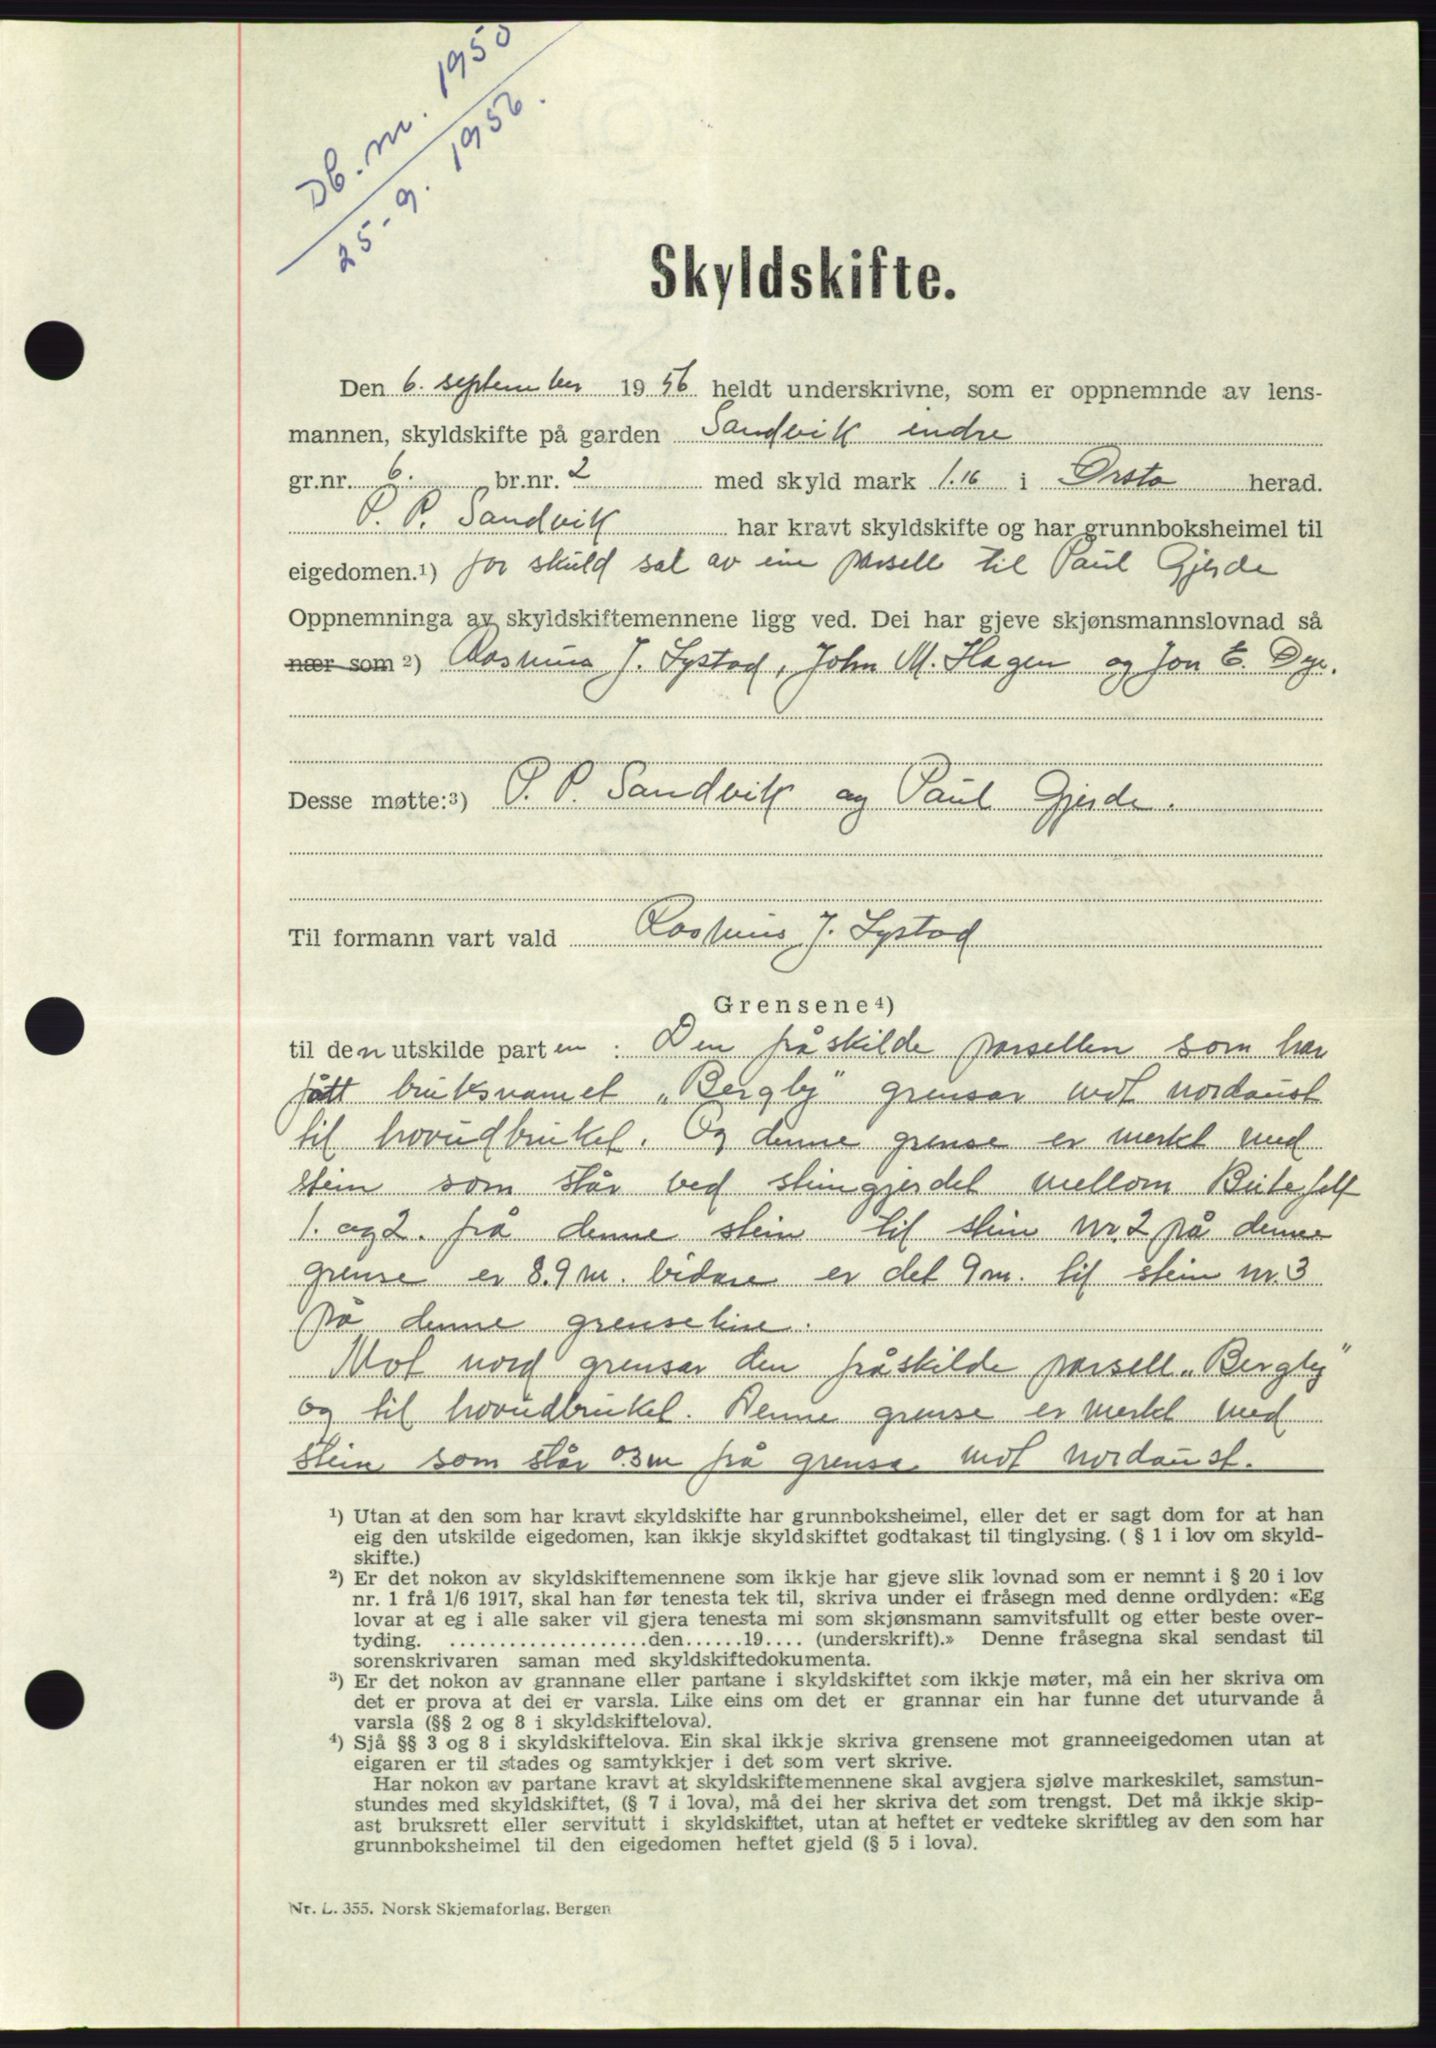 Db. nr. 1950
25-9. 1956.
Skyldskifte.
Den 6. september 1956 heldt underskrivne, som er oppnemnde av lens-
mannen, skyldskifte på garden Sandvik indre
gr.nr. 6. br.nr. 2 med skyld mark 1.16 i Ørsta herad.
P. P. Sandvik har kravt skyldskifte og har grunnboksheimel til
eigedomen.¹) for skuld sal av ein parsell til Paul Gjerde
Oppnemninga av skyldskiftemennene ligg ved. Dei har gjeve skjønsmannslovnad så
nær som ²) Rasmus J. Systad, John M. Hagen og Jon E. Dye.
Desse møtte:³) P. P. Sandvik og Paul Gjerde.
Til formann vart vald Rasmus J. Systad
Grensene⁴)
til den utskilde parten : Den fråskilde parsellen som har
fått bruksnamet „Bergly" grensar mot nordaust
til hovudbruket. Og denne grense er merkt med
stein som står ved steingjerdet mellom Beitefelt
1. og 2. frå denne stein til stein nr. 2 på denne
grense er 8.9 m. vidare er det 9 m. til stein nr. 3
på denne grenseline.
Mot nord grensar den fråskilde parsell „Bergly"
og til hovudbruket. Denne grense er merkt med
stein som står 0.3 m frå grensa mot nordaust.
¹) Utan at den som har kravt skyldskifte har grunnboksheimel, eller det er sagt dom for at han
eig den utskilde eigedomen, kan ikkje skyldskiftet godtakast til tinglysing. ( § 1 i lov om skyld-
skifte.)
²) Er det nokon av skyldskiftemennene som ikkje har gjeve slik lovnad som er nemnt i § 20 i lov
nr. 1 frå 1/6 1917, skal han før tenesta tek til, skriva under ei fråsegn med denne ordlyden: «Eg
lovar at eg i alle saker vil gjera tenesta mi som skjønsmann samvitsfullt og etter beste over-
tyding. ....................den......19.... (underskrift).» Denne fråsegna skal sendast til
sorenskrivaren saman med skyldskiftedokumenta.
³) Er det nokon av grannane eller partane i skyldskiftet som ikkje møter, må ein her skriva om
det er prova at dei er varsla. Like eins om det er grannar ein har funne det uturvande å
varsla (§§ 2 og 8 i skyldskiftelova).
⁴) Sjå §§ 3 og 8 i skyldskiftelova. Ein skal ikkje skriva grensene mot granneeigedomen utan at
eigaren er til stades og samtykkjer i det som vert skrive.
Har nokon av partane kravt at skyldskiftemennene skal avgjera sjølve markeskilet, samstun-
stundes med skyldskiftet, (§ 7 i lova), må dei her skriva det som trengst. Det må ikkje skip-
ast bruksrett eller servitutt i skyldskiftet, utan at heftet er vedteke skriftleg av den som har
grunnboksheimel til den eigedomen heftet gjeld (§ 5 i lova).
Nr. L. 355. Norsk Skjemaforlag. Bergen